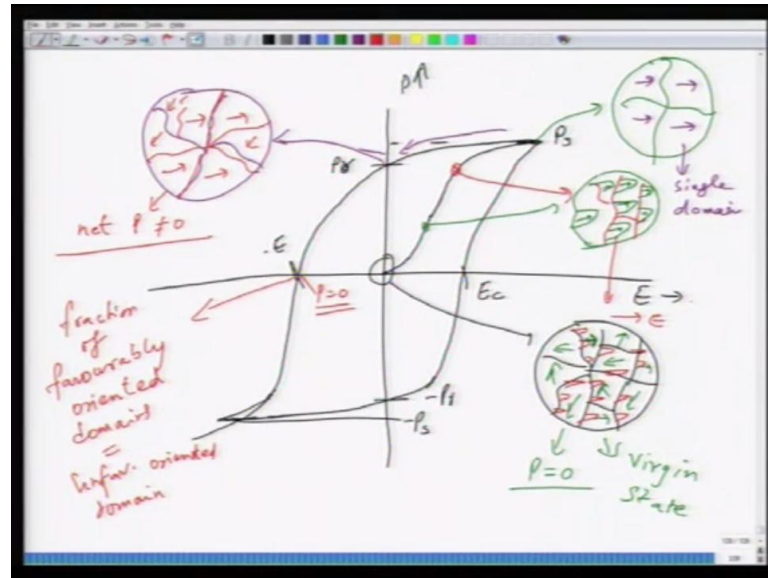 P↑
Ps
Pr
single
domain
net P ≠ 0
-E
P=0
Ec
E →
→ E
fraction
of
favourably
oriented
domains
=
Unfav. oriented
domain
-Pr
-Ps
P=0
Virgin
State